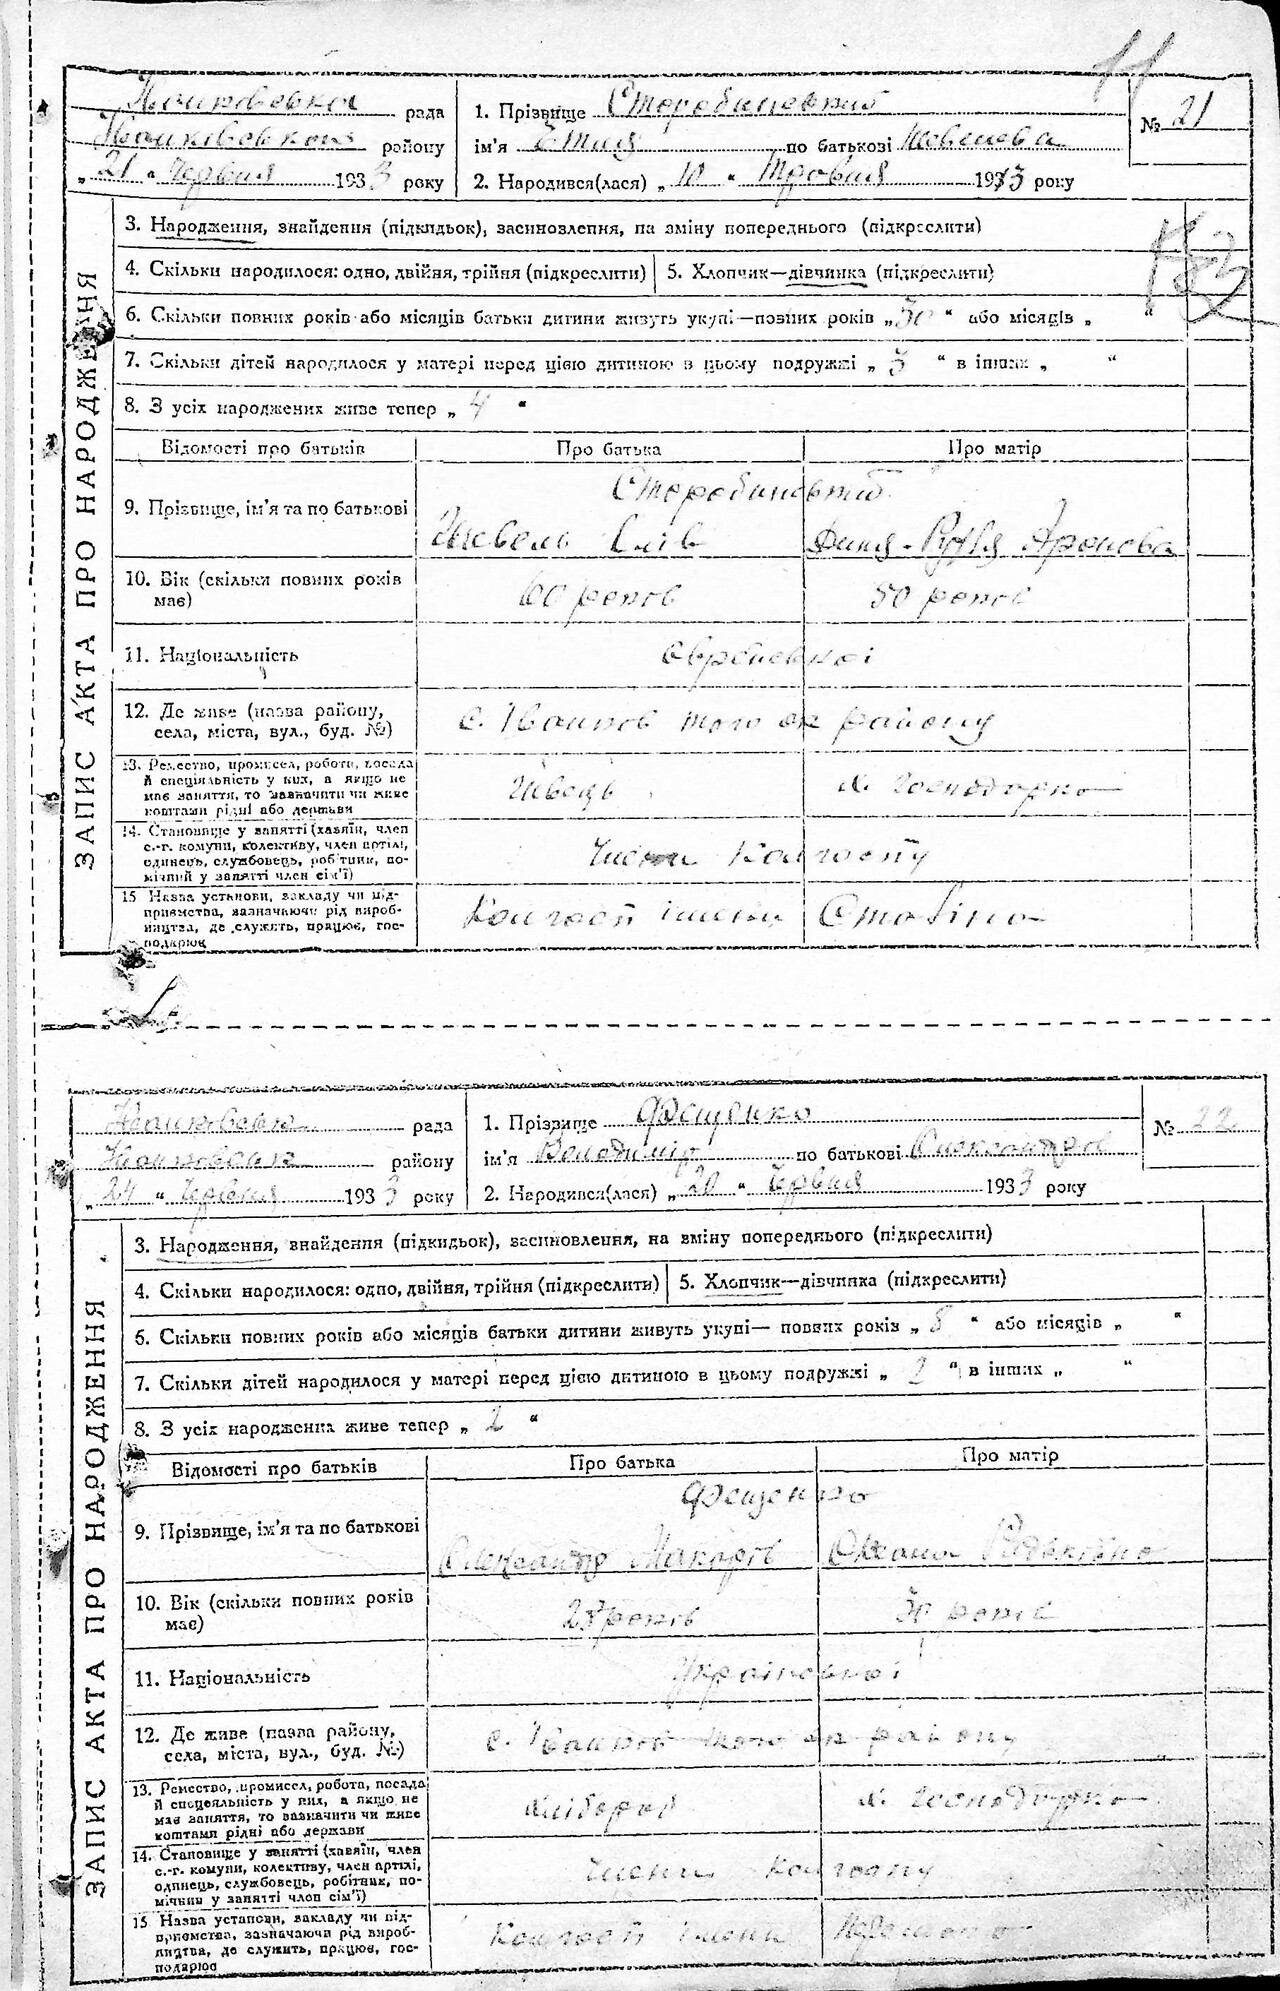 11
Іванковська рада
Іванківського району
„ 21 “ Червня 1933 року
1. Прізвище Старобинський
ім'я Етля по батькові Шевелева
2. Народився(лася) „ 10 “ Травня 1933 року
№ 21
ЗАПИС АКТА ПРО НАРОДЖЕННЯ
3. Народження, знайдення (підкидьок), засиновлення, на зміну попереднього (підкреслити)
4. Скільки народилося: одно, двійня, трійня (підкреслити) 5. Хлопчик—дівчинка (підкреслити)
6. Скільки повних років або місяців батьки дитини живуть укупі—повних років „ 30 “ або місяців „ “
7. Скільки дітей народилося у матері перед цією дитиною в цьому подружжі „ 3 “ в інших „ “
8. З усіх народжених живе тепер „ 4 “
Відомості про батьків Про батька Про матір
9. Прізвище, ім'я та по батькові
Старобинський
Шевель Аронова
10. Вік (скільки повних років має) 60 років 50 років
11. Національність єврейської
12. Де живе (назва району, села, міста, вул., буд. №) с. Іванків того ж району
13. Ремество, промисел, робота, посада
й спеціяльність у них, а якщо не
має заняття, то зазначити чи живе
коштами рідні або держави
Швець д. господарка
14. Становище у занятті (хазяїн, член
с.-г. комуни, колективу, член артілі,
одинець, службовець, робітник, по-
мічний у занятті член сім'ї)
Члени Колгоспу
15 Назва установи, закладу чи під-
приємства, зазначаючи рід вироб-
ництва, де служить, працює, гос-
подарює
Колгосп імени Сталіна
Іванковська рада
Іванковська району
„ 24 “ Червня 1933 року
1. Прізвище Фещенко
ім'я Володимір по батькові Олександров
2. Народився(лася) „ 20 “ Червня 1933 року
№ 22
ЗАПИС АКТА ПРО НАРОДЖЕННЯ
3. Народження, знайдення (підкидьок), засиновлення, на зміну попереднього (підкреслити)
4. Скільки народилося: одно, двійня, трійня (підкреслити) 5. Хлопчик—дівчинка (підкреслити)
6. Скільки повних років або місяців батьки дитини живуть укупі— повних років „ 8 “ або місяців „ “
7. Скільки дітей народилося у матері перед цією дитиною в цьому подружжі „ 2 “ в інших „ “
8. З усіх народжених живе тепер „ 2 “
Відомості про батьків Про батька Про матір
9. Прізвище, ім'я та по батькові
Фещенко
Олександр Макарів Оксана
10. Вік (скільки повних років має) 28 років 30 років
11. Національність Української
12. Де живе (назва району, села, міста, вул., буд. №) с. Іванків того ж району
13. Ремество, промисел, робота, посада
й спеціяльність у них, а якщо не
має заняття, то зазначити чи живе
коштами рідні або держави
Хлібороб д. господарка
14. Становище у занятті (хазяїн, член
с.-г. комуни, колективу, член артілі,
одинець, службовець, робітник, по-
мічний у занятті член сім'ї)
Члени Колгоспу
15 Назва установи, закладу чи під-
приємства, зазначаючи рід вироб-
ництва, де служить, працює, гос-
подарює
Колгосп імени